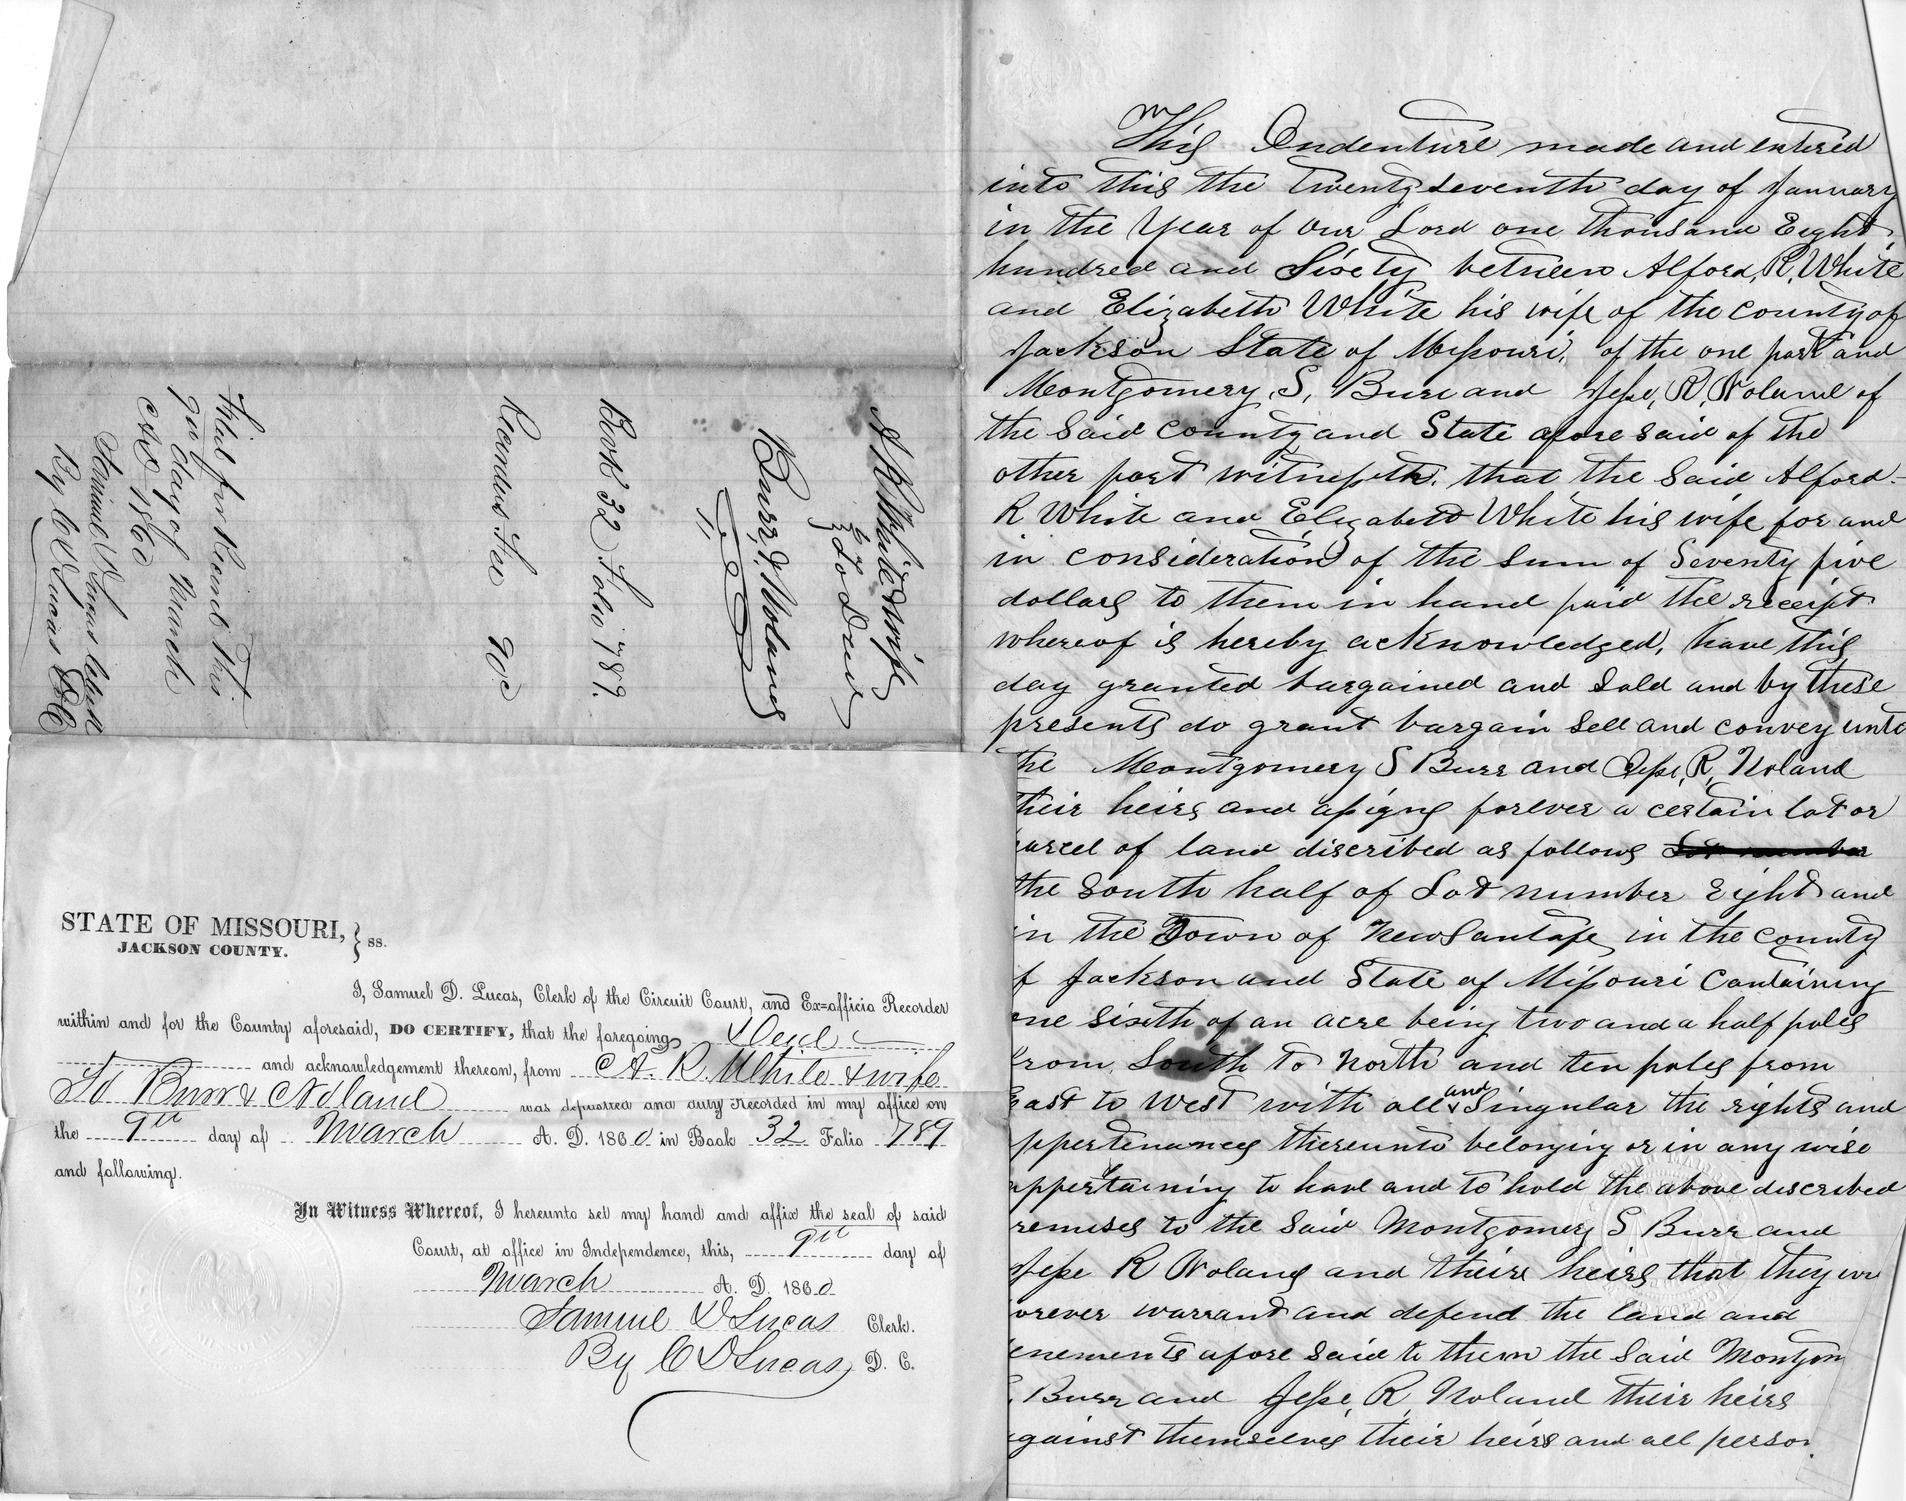 This Indenture made and entered
into this the Twenty Seventh day of January
in the Year of our Lord one thousand Eight
hundred and Sixty between Alford, R, White
and Elizabeth White his wife of the county of
Jackson State of Missouri, of the one part and
Montgomery, S, Burr and Jesse, R, Noland of
the Said County and State afore said of the
other part witnesseth, that the Said Alford
R White and Elizabeth White his wife for and
in consideration of the sum of Seventy five
dollars to them in hand paid the receipt
whereof is hereby acknowledged, have this
day granted bargained and Sold and by these
presents do grant bargain Sell and convey unto
the Montgomery S Burr and Jesse, R, Noland
their heirs and assigns forever a certain lot or
parcel of land discribed as follows Lot number
the South half of Lot number Eight and
in the Town of New Santafe in the County
of Jackson and State of Missouri Containing
one Sixth of an acre being two and a half poles
from South to North and ten poles from
East to West with all and Singular the rights and
appertenances thereunto belonging or in any wise
appertaining to have and to hold the above discribed
remises to the Said Montgomery S Burr and
Jesse R Noland and theire heirs that they wi
orever warrant and defend the land and
enements afore Said to them the Said Montgom
S Burr and Jesse, R, Noland their heirs
against themselves their heirs and all person
A R White & wife
To Deed
Burr & Noland
Book 32 Folio 789.
Recorders Fee 90c
Filed for Record this
9th day of March
AD 1860
Samuel D Lucas Clerk
By C D Lucas DC
STATE OF MISSOURI, } ss.
JACKSON COUNTY.
I, Samuel D. Lucas, Clerk of the Circuit Court, and Ex=officio Recorder
within and for the County aforesaid, DO CERTIFY, that the foregoing Deed
and acknowledgement thereon, from A. R. White & wife
To Burr & Noland was deposited and duly Recorded in my office on
the 9th day of March A. D. 1860 in Book 32 Folio 789
and following.
In Witness Whereof, I hereunto set my hand and affix the seal of said
Court, at office in Independence, this, 9th day of
March A. D. 1860
Samuel D Lucas Clerk.
By C D Lucas, D. C.